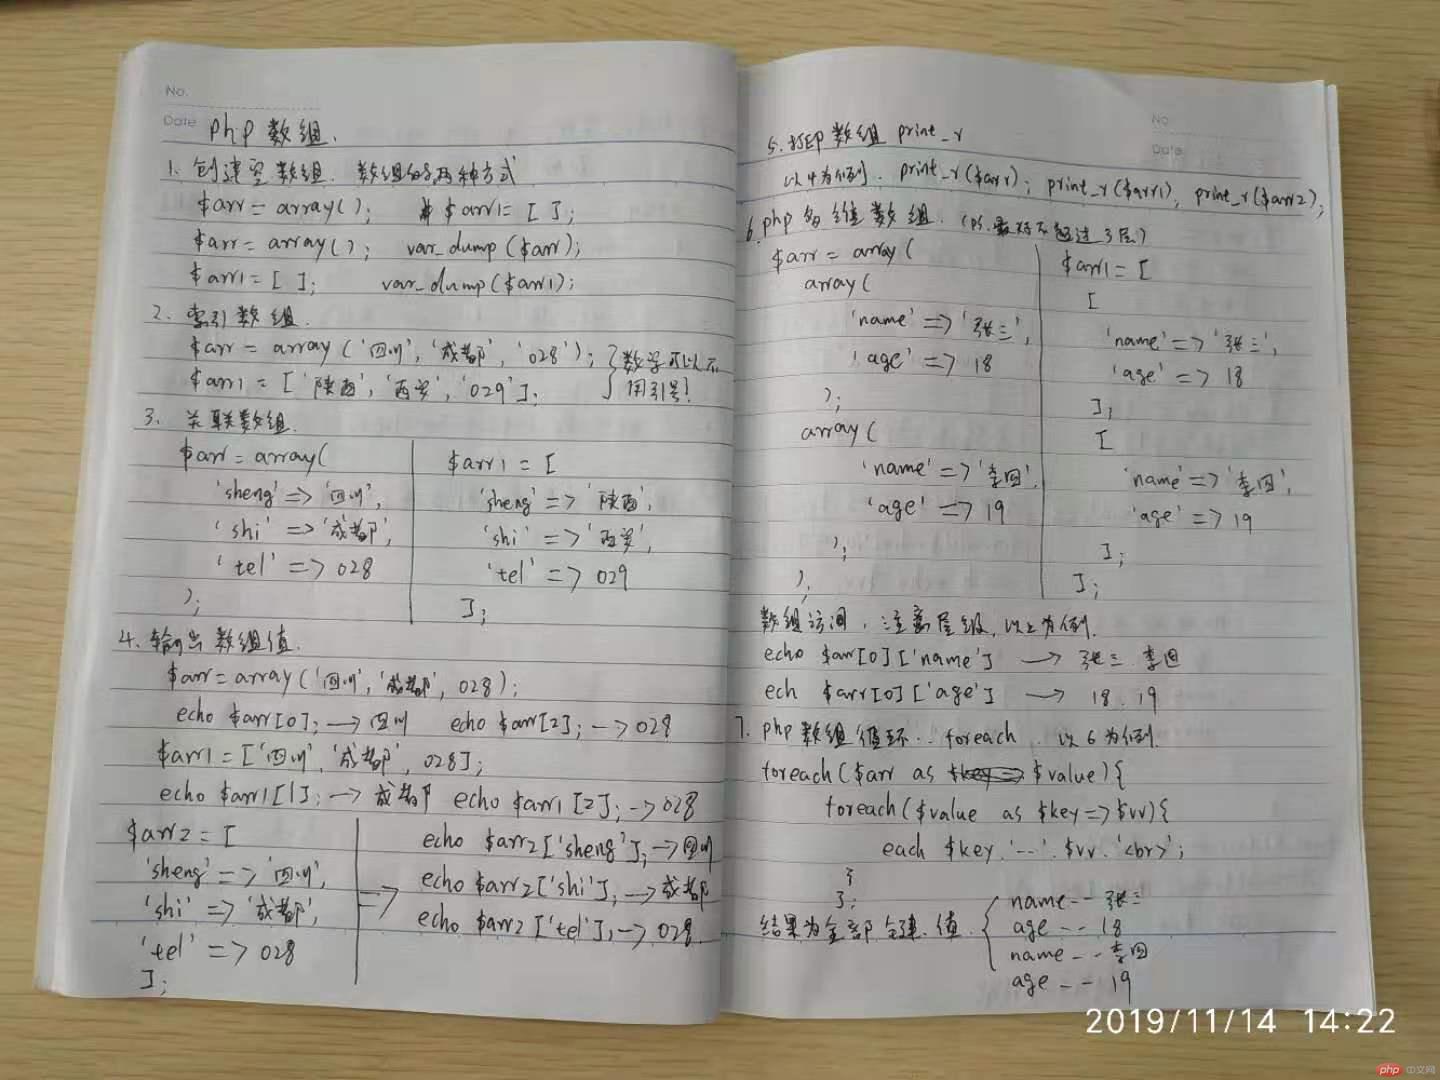 No.
Date
php 数组.
1. 创建空数组. 数组的两种方式
$arr = array(); $arr1 = [ ];
$arr = array(); var_dump($arr);
$arr1 = [ ]; var_dump($arr1);
2. 索引数组.
$arr = array('四川','成都','028'); }数字可以不
$arr1 = ['陕西','西安','029']; 用引号!
3. 关联数组.
$arr = array(
'sheng' => '四川',
'shi' => '成都',
'tel' => 028
);
$arr1 = [
'sheng' => '陕西',
'shi' => '西安',
'tel' => 029
];
4. 输出数组值.
$arr = array('四川','成都', 028);
echo $arr[0]; —> 四川 echo $arr[2]; —> 028
$arr1 = ['四川','成都', 028];
echo $arr1[1]; —> 成都 echo $arr1[2]; —> 028
$arr2 = [
'sheng' => '四川',
'shi' => '成都',
'tel' => 028
];
=>
echo $arr2['sheng']; —> 四川
echo $arr2['shi']; —> 成都
echo $arr2['tel']; —> 028.
No.
Date
5. 打印数组 print_r
以4为例. print_r($arr); print_r($arr1); print_r($arr2);
6. php 多维数组. (ps.最好不超过3层)
$arr = array(
array(
'name' => '张三',
'age' => 18
);
array(
'name' => '李四',
'age' => 19
);
);
$arr1 = [
[
'name' => '张三',
'age' => 18
];
[
'name' => '李四',
'age' => 19
];
];
数组访问, 注意层级, 以上为例.
echo $arr[0]['name'] —> 张三.李四
ech $arr[0]['age'] —> 18.19
7. php数组循环.. foreach. 以6为例.
foreach($arr as $value){
foreach($value as $key=>$vv){
each $key.'--'.$vv.'<br>';
}
};
结果为全部键.值.
name -- 张三
age -- 18
name -- 李四
age -- 19
2019/11/14 14:22
php 中文网